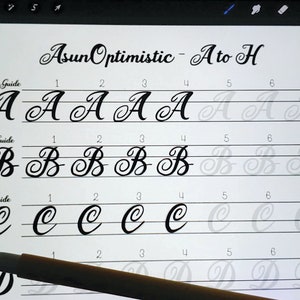 AsunOptimistic - A to H
Guide 1 2 3 4 5 6
A A A A A A A
Guide 1 2 3 4 5 6
B B B B B B B
Guide 1 2 3 4 5 6
C C C C C C C
1 2 3 4 5 6
D D D D D D D